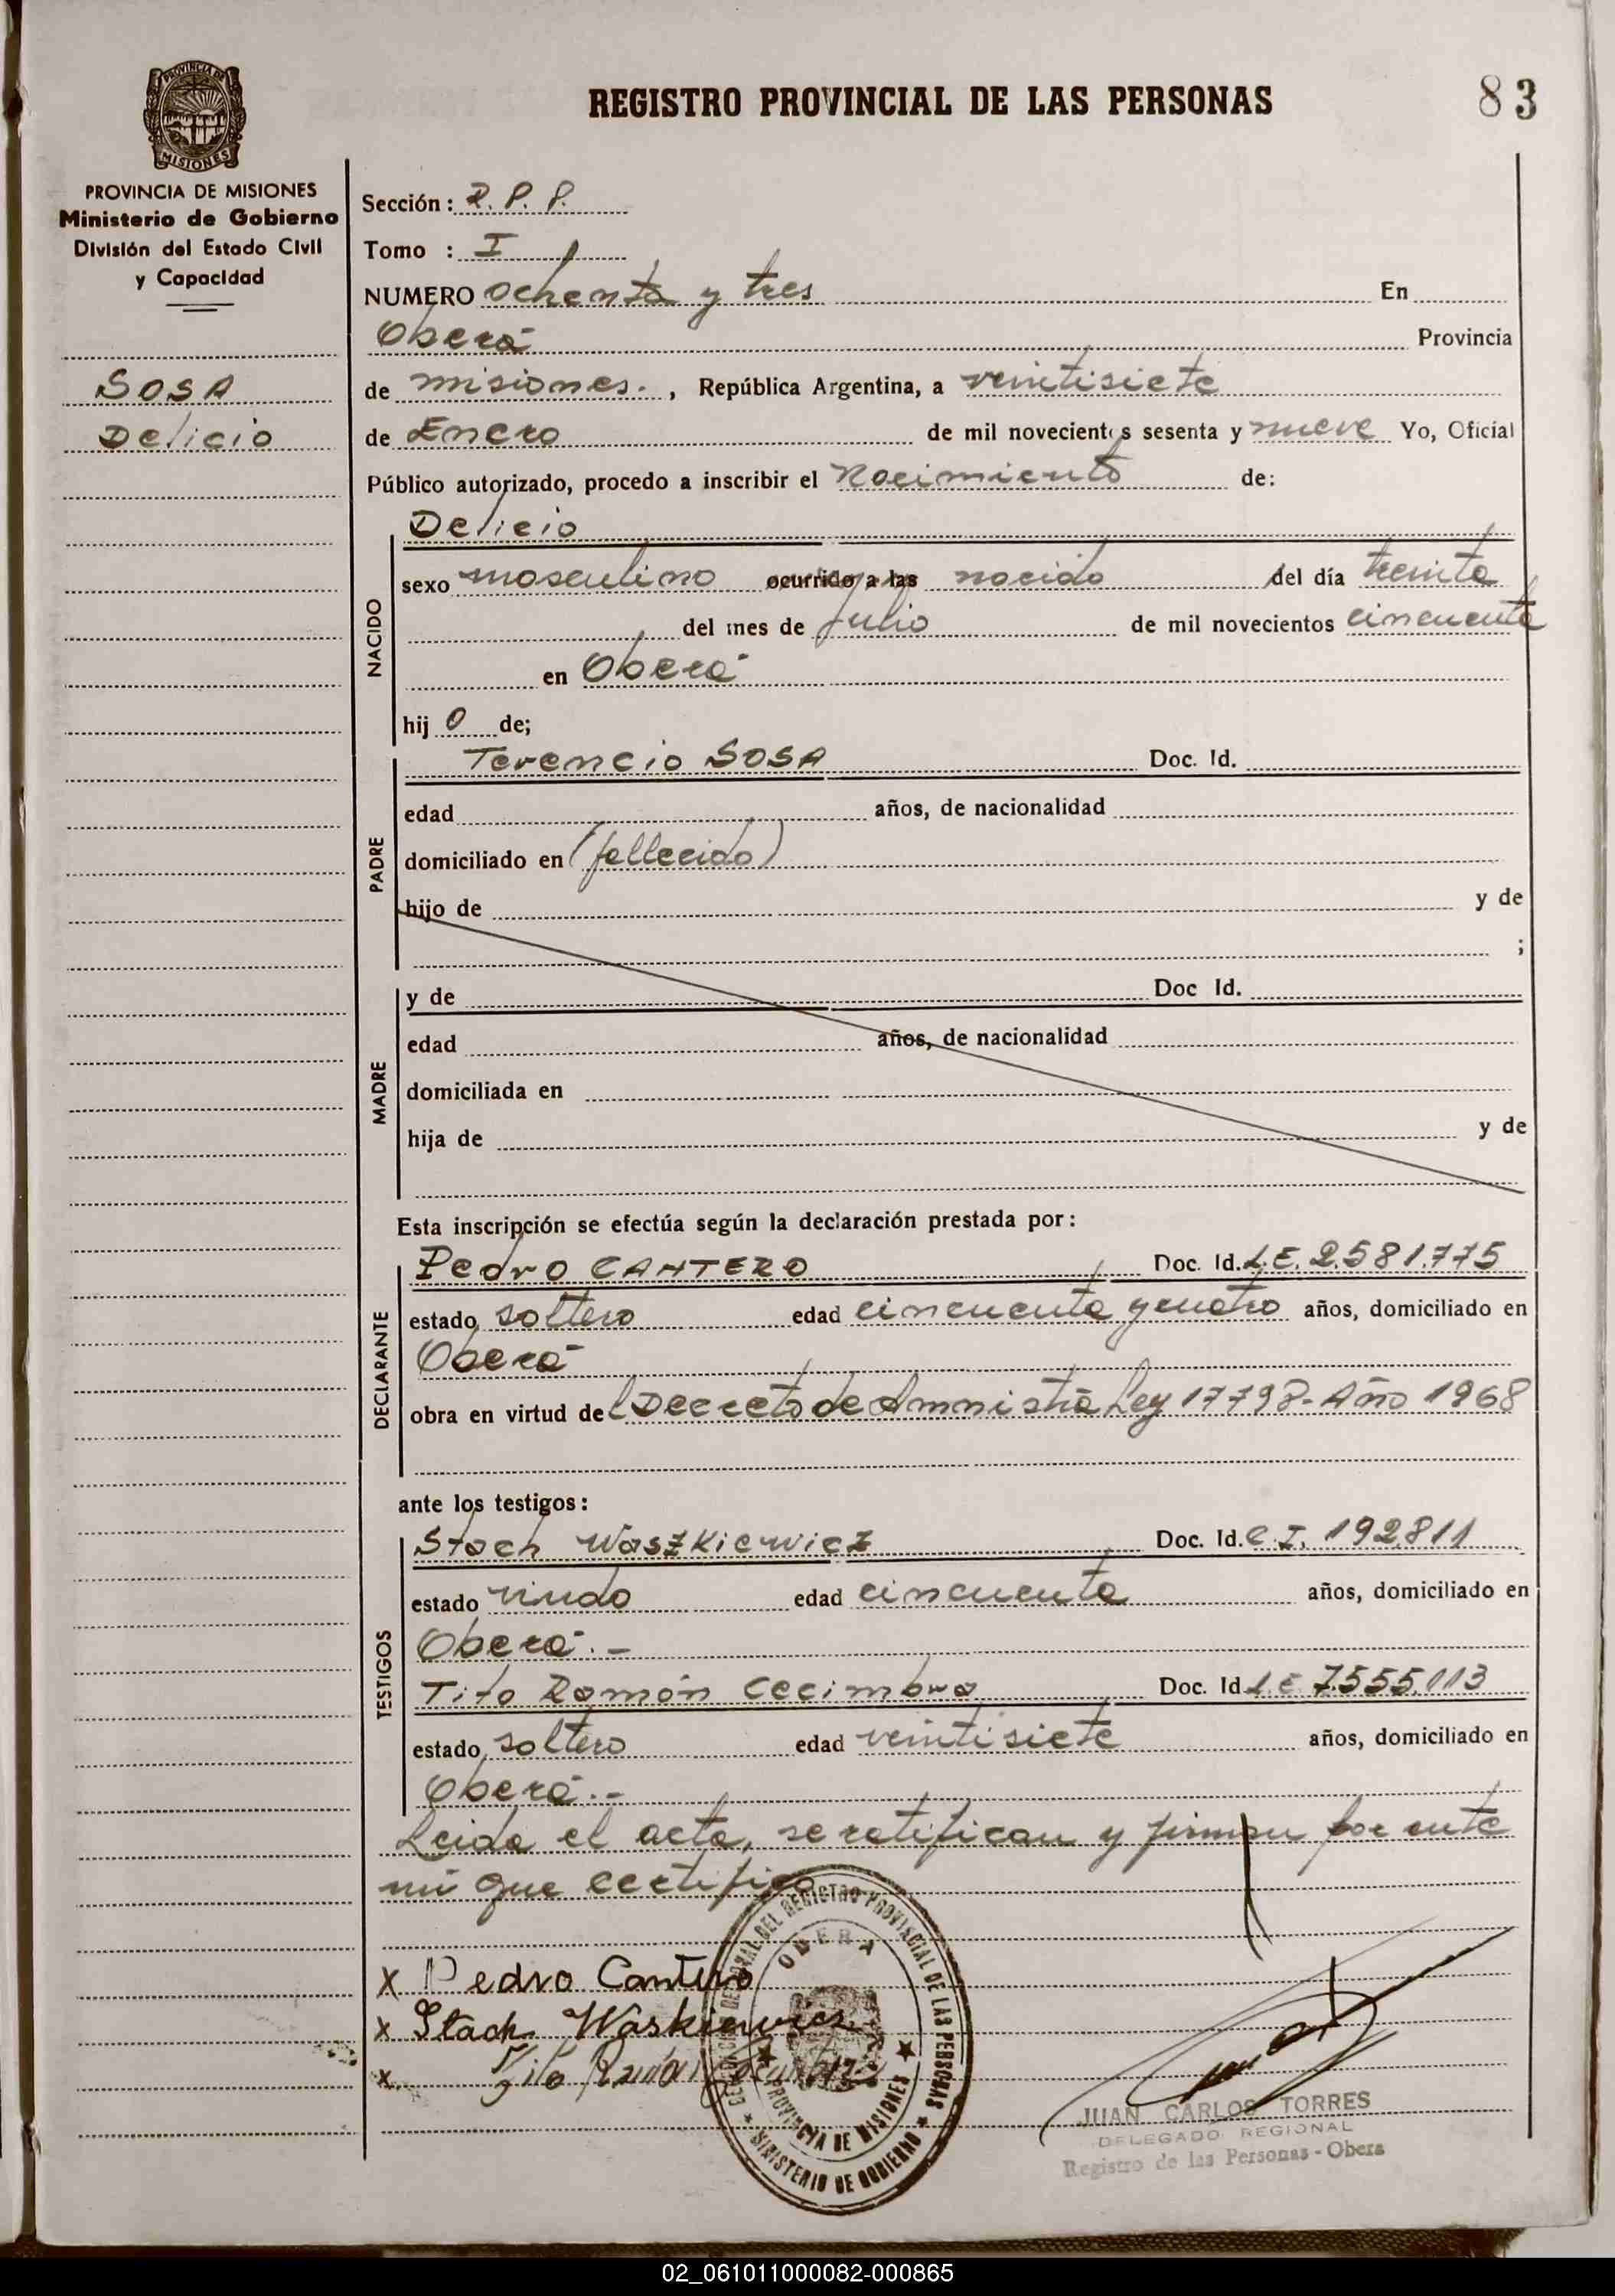 REGISTRO PROVINCIAL DE LAS PERSONAS
83
PROVINCIA DE MISIONES
PROVINCIA DE MISIONES
Ministerio de Gobierno
División del Estado Civil
y Capacidad
SOSA
Delicio
Sección: R. P. P.
Tomo : I
NUMERO ochenta y tres En
Oberá Provincia
de misiones. , República Argentina, a veintisiete
de Enero de mil novecientos sesenta y nueve Yo, Oficial
Público autorizado, procedo a inscribir el Nacimiento de:
Delicio
NACIDO
sexo masculino ocurrido a las nacido del día treinta
del mes de julio de mil novecientos cincuenta
en Oberá
hij o de;
PADRE
Terencio SOSA Doc. Id.
edad años, de nacionalidad
domiciliado en (fallecido)
hijo de y de
;
MADRE
y de Doc Id.
edad años, de nacionalidad
domiciliada en
hija de y de
Esta inscripción se efectúa según la declaración prestada por:
DECLARANTE
Pedro CANTERO Doc. Id. L.E. 2.581.775
estado soltero edad cincuenta y cuatro años, domiciliado en
Oberá
obra en virtud del Decreto de Amnistía Ley 17798-Año 1968
ante los testigos:
TESTIGOS
Stach Waszkiewicz Doc. Id. C.I. 192.811
estado viudo edad cincuenta años, domiciliado en
Oberá.-
Tito Ramón Cecimbra Doc. Id L.E 7.555.113
estado soltero edad veintisiete años, domiciliado en
Oberá.-
Leida el acta, se ratifican y firman por ante
mi que certifico
x Pedro Cantero
x Stach Waskiewicz
x Tito Ramón
DEL REGISTRO PROVINCIAL DE LAS PERSONAS
OBERA
PROVINCIA DE MISIONES
MINISTERIO DE GOBIERNO
JUAN CARLOS TORRES
DELEGADO REGIONAL
Registro de las Personas - Obera
02_061011000082-000865